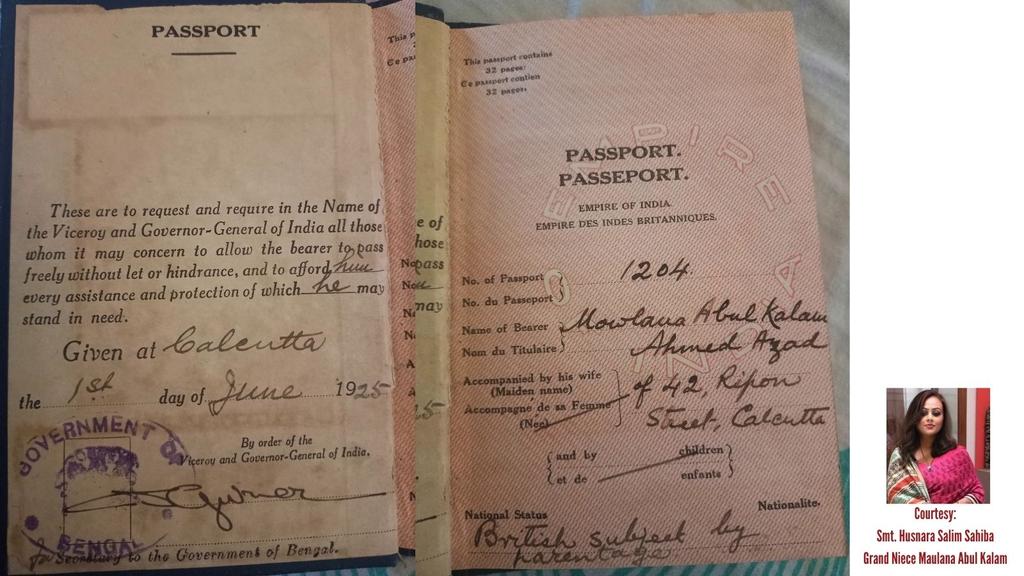 PASSPORT
These are to request and require in the Name of
the Viceroy and Governor-General of India all those
whom it may concern to allow the bearer to pass
freely without let or hindrance, and to afford him
every assistance and protection of which he may
stand in need.
Given at Calcutta
the 1st day of June 1925
By order of the
Viceroy and Governor-General of India.
GOVERNMENT OF
BENGAL
for Secretary to the Government of Bengal.
This p
Ce pa
e of
hose
pass
may
25
This passport contains
32 pages.
Ce passport contien
32 pages.
EMPIRE
PASSPORT.
PASSEPORT.
EMPIRE OF INDIA.
EMPIRE DES INDES BRITANNIQUES.
No. of Passport
No. du Passeport
1204.
Name of Bearer
Nom du Titulaire
Mowlana Abul Kalam
Ahmed Azad
Accompanied by his wife
(Maiden name)
Accompagne de sa Femme
(Neé)
of 42, Ripon
Street, Calcutta
and by children
et de enfants
National Status Nationalite.
British subject by
parentage
Courtesy:
Smt. Husnara Salim Sahiba
Grand Niece Maulana Abul Kalam